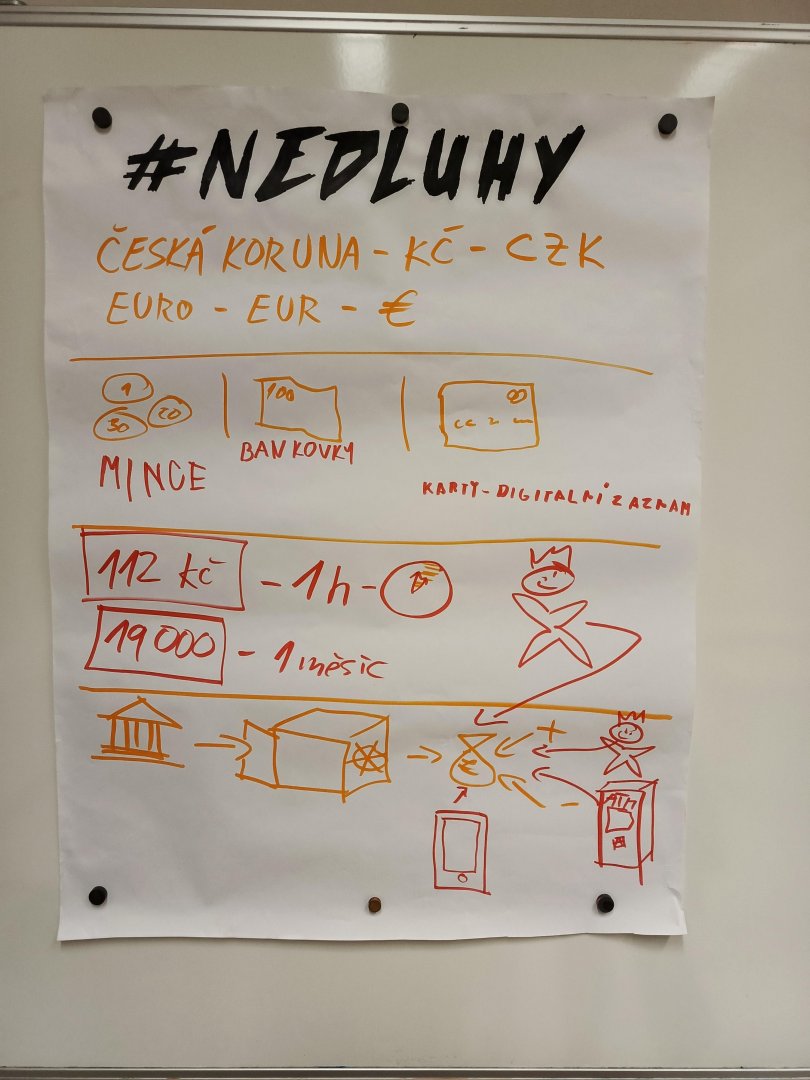 #NEDLUHY
ČESKÁ KORUNA - KČ - CZK
EURO - EUR - €
1
20
100
MINCE
BANKOVKY
KARTY - DIGITALNÍ ZAZNAM
112 kč - 1h -
19 000 - 1 měsíc
+
-
ATM